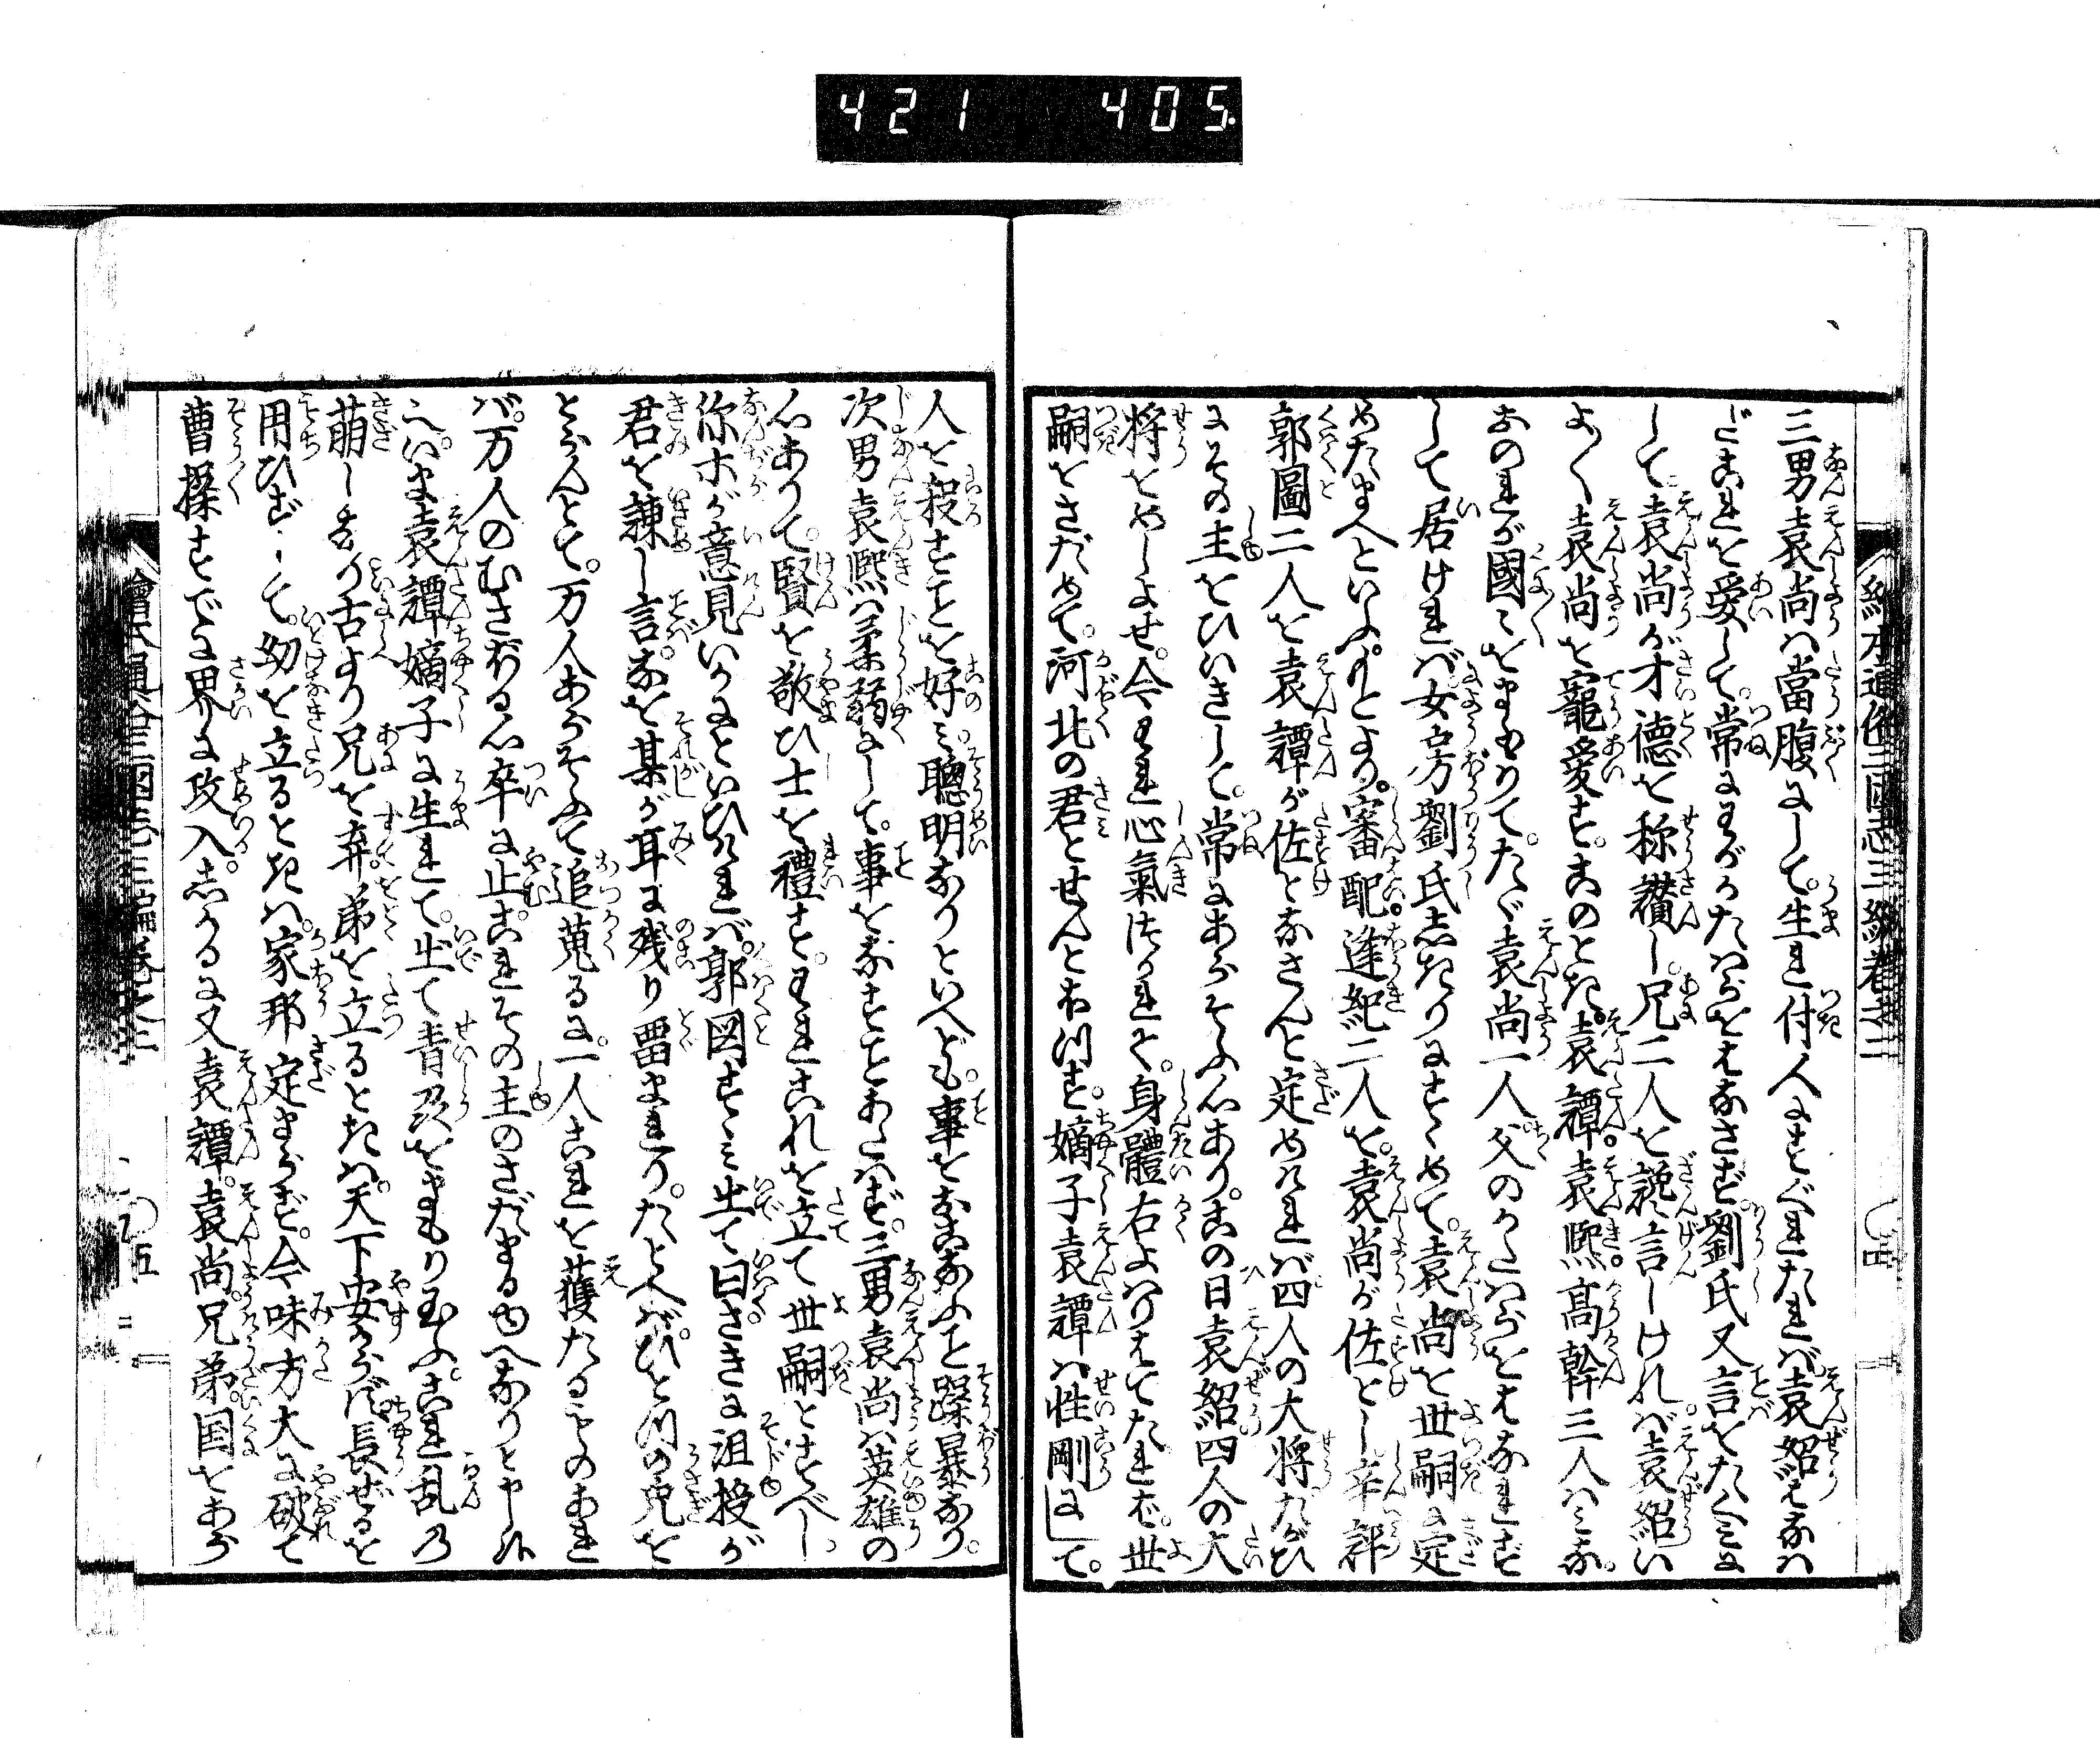 421 405
三男袁尚ハ當腹にして。生れ付人にすぐれたれバ。袁紹はなハ
だこれを愛して。常にわがかたハらをはなさず。劉氏又言をたくミに
して。袁尚が才徳を称讃し。兄二人を讒言しけれバ。袁紹い
よ〱袁尚を寵愛す。このとき。袁譚。袁熈。高幹三人ハミな。
おのれが國〻をまもりて。たゞ袁尚一人。父のかたハらをはなれず
して居けれバ。女房劉氏しきりにすゝめて。袁尚を世嗣に定
めたまへといふ。もとより。審配。逢紀二人を。袁尚が佐とし。辛評
郭圖二人を袁譚が佐となさんと定めけれバ。四人の大将たがひ
にその主をひいきして。常にあらそふ心あり。この日袁紹四人の大
将をめしよせ。今われ心氣つかれて。身體右よハりはてたれバ。世
嗣をさだめて。河北の君とせんとおもす。嫡子袁譚ハ性剛にして。
人を殺すことを好ミ。聰明なりといへども。事をおこなふこと躁暴なり。
次男袁熈ハ柔弱にして。事をなすことあたハず。三男袁尚ハ英雄の
心ありて。賢を敬ひ士を禮す。われこれを立て世嗣とすべし。
你ホが意見いかにといひけれバ。郭図すゝミ出て曰。さきに沮授が
君を諫し言。なを某が耳に残り畱まれり。たとへバ。ひとつの兎を
とらんとて。万人あらそふて追蒐るに。一人これを獲たるものあれ
バ。万人のむさぼる心卒に止。これその主のさだまるゆへなりと申け
る。いま袁譚嫡子に生れて。出て青州をまもり玉ふ。これ乱乃
萌し也。古より兄を弃。弟を立るときハ。天下安からず。長ぜるを
用ひずして。幼を立るときハ。家邦定まらず。今味方大に破て
曹操すでに界に攻入。しかるに又袁譚。袁尚。兄弟。国をあら